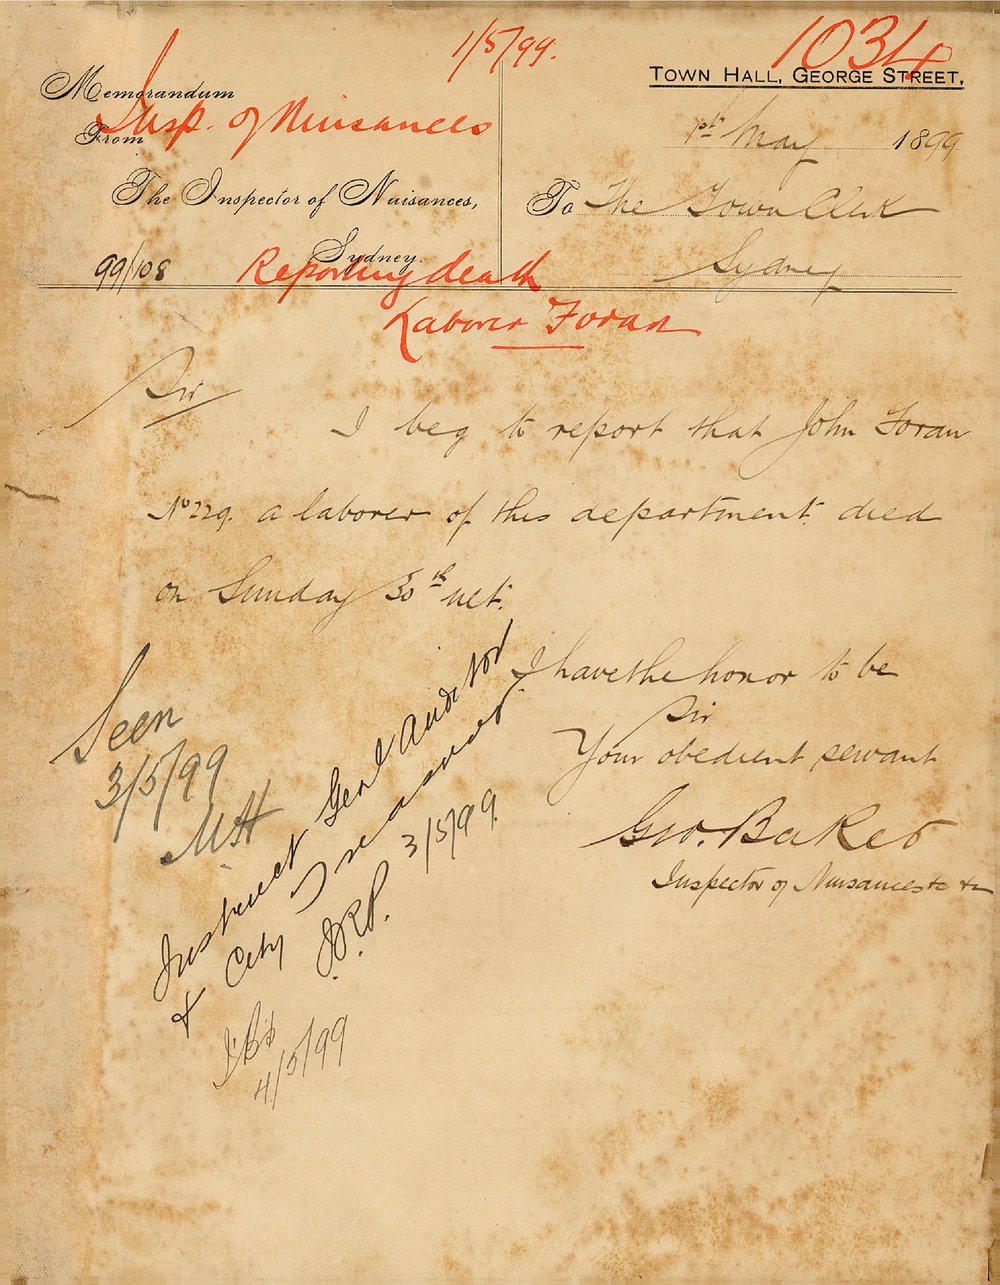 1/5/99.
1034
Memorandum
From
Insp. of Nuisances
The Inspector of Nuisances,
Sydney.
99/108
Town Hall, George Street,
1st May 1899
To The Town Clerk
Sydney
Reporting death
Laborer Foran
Sir
I beg to report that John Foran
No 229. a laborer of this department died
on Sunday 30th ult.
I have the honor to be
Sir
Your obedient servant
Geo. Baker
Inspector of Nuisances &c &c
Seen
3/5/99
Instruct Genl Auditor
& City Treasurer
3/5/99
4/5/99